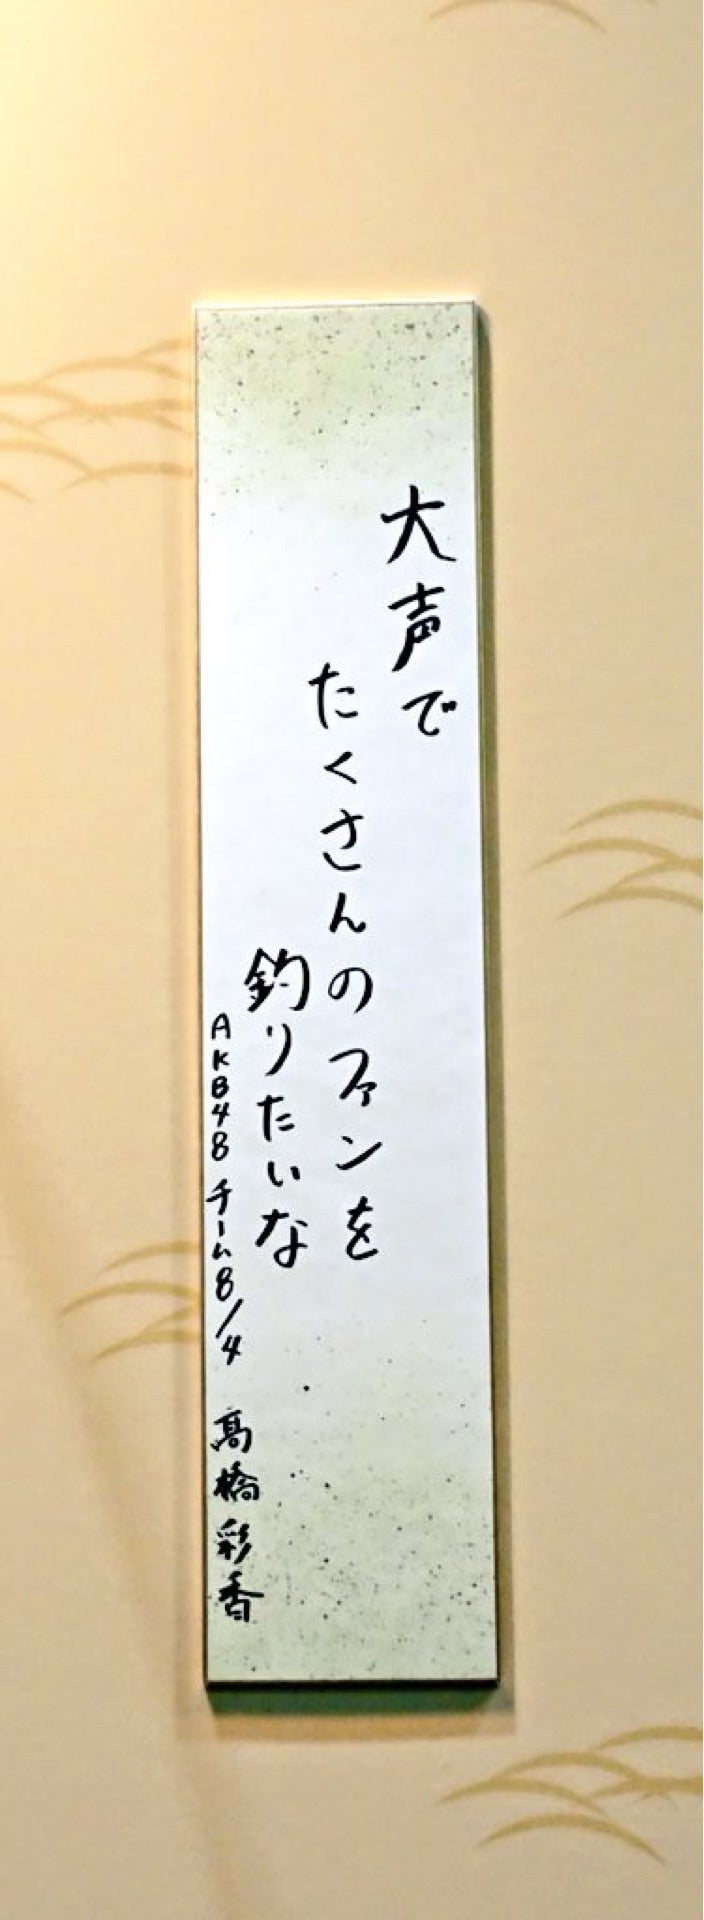 大声で
たくさんのファンを
釣りたいな
AKB48 チーム8/4 髙橋彩香